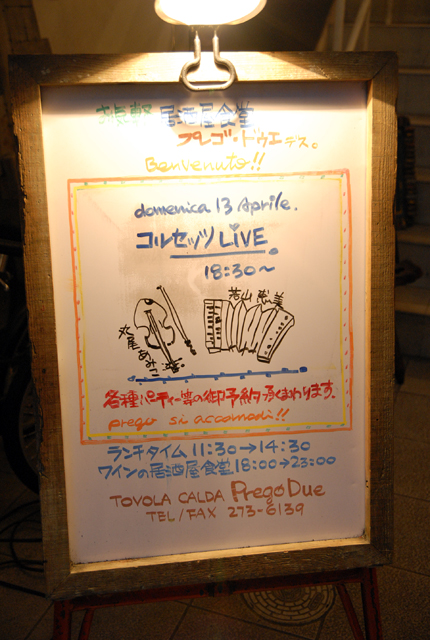 お気軽居酒屋食堂
プレゴ・ドゥエデス。
Benvenuto!!
domenica 13 Aprile.
コルセッツLIVE.
18:30〜
水尾あみこ
若山 恵美
各種パーティー等の御予約承まわります。
prego si accomodi!!
ランチタイム 11:30→14:30
ワインの居酒屋食堂 18:00→23:00
TOVOLA CALDA Prego Due
TEL/FAX 273-6139